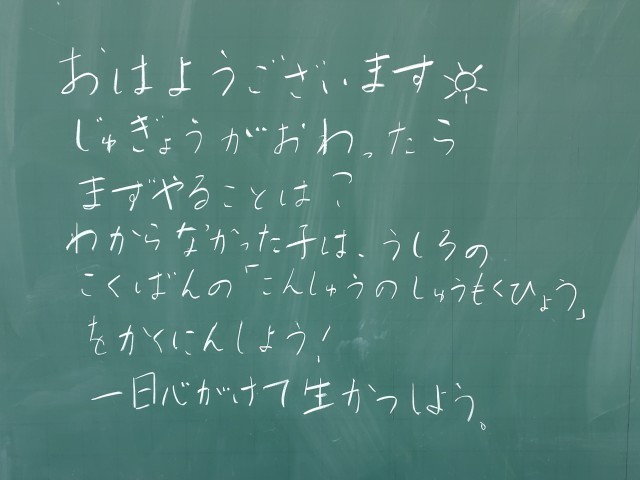 おはようございます☀
じゅぎょうがおわったら
まずやることは?
わからなかった子は、うしろの
こくばんの「こんしゅうのしゅうもくひょう」
をかくにんしよう!
一日心がけて生かつしよう。